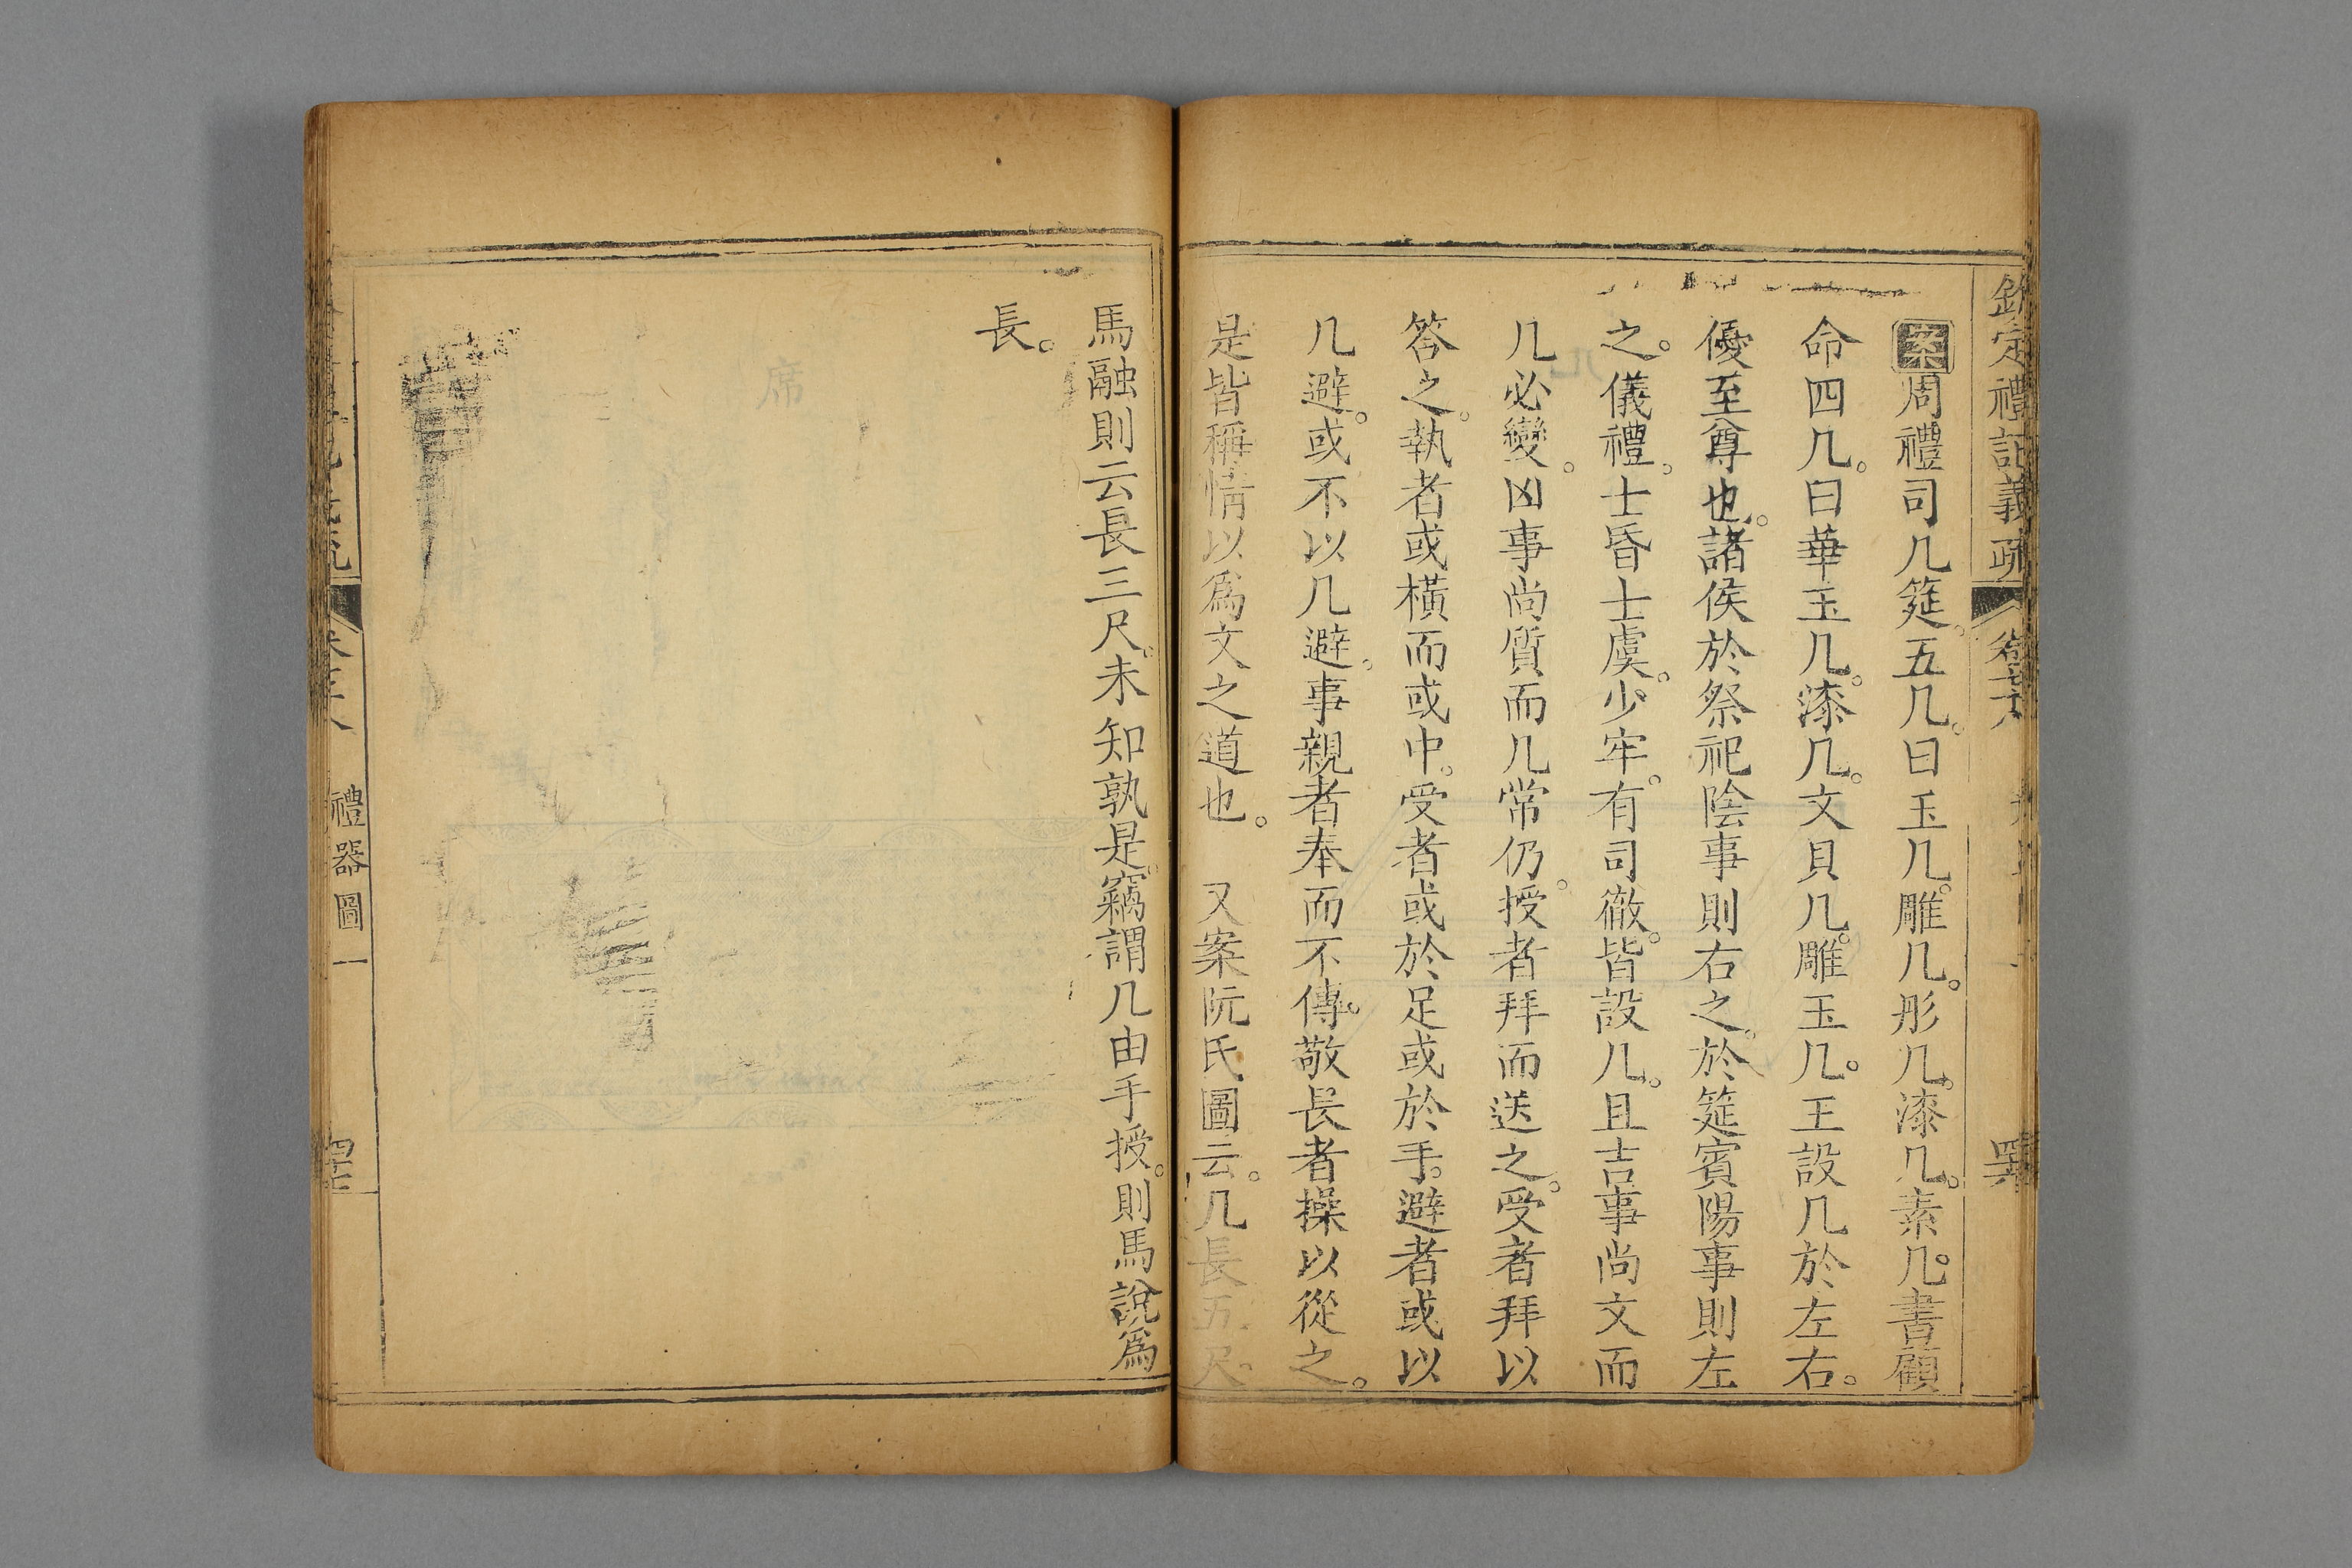 欽定禮記義疏
案周禮司几筵。五几。曰玉几。雕几。彤几。漆几。素几。書顧
命四几。曰華玉几。漆几。文貝几。雕玉几。王設几於左右。
優至尊也。諸侯於祭祀陰事則右之。於筵賓陽事則左
之。儀禮。士昏士虞。少牢。有司徹。皆設几。且吉事尚文而
几必變。凶事尚質而几常仍。授者拜而送之。受者拜以
答之。執者或橫而或中。受者或於足或於手。避者或以
几避。或不以几避。事親者奉而不傳。敬長者操以從之。
是皆稱情以爲文之道也。　又案阮氏圖云。几長五尺。
馬融則云長三尺。未知孰是。竊謂几由手授。則馬說爲
長。
禮器圖一